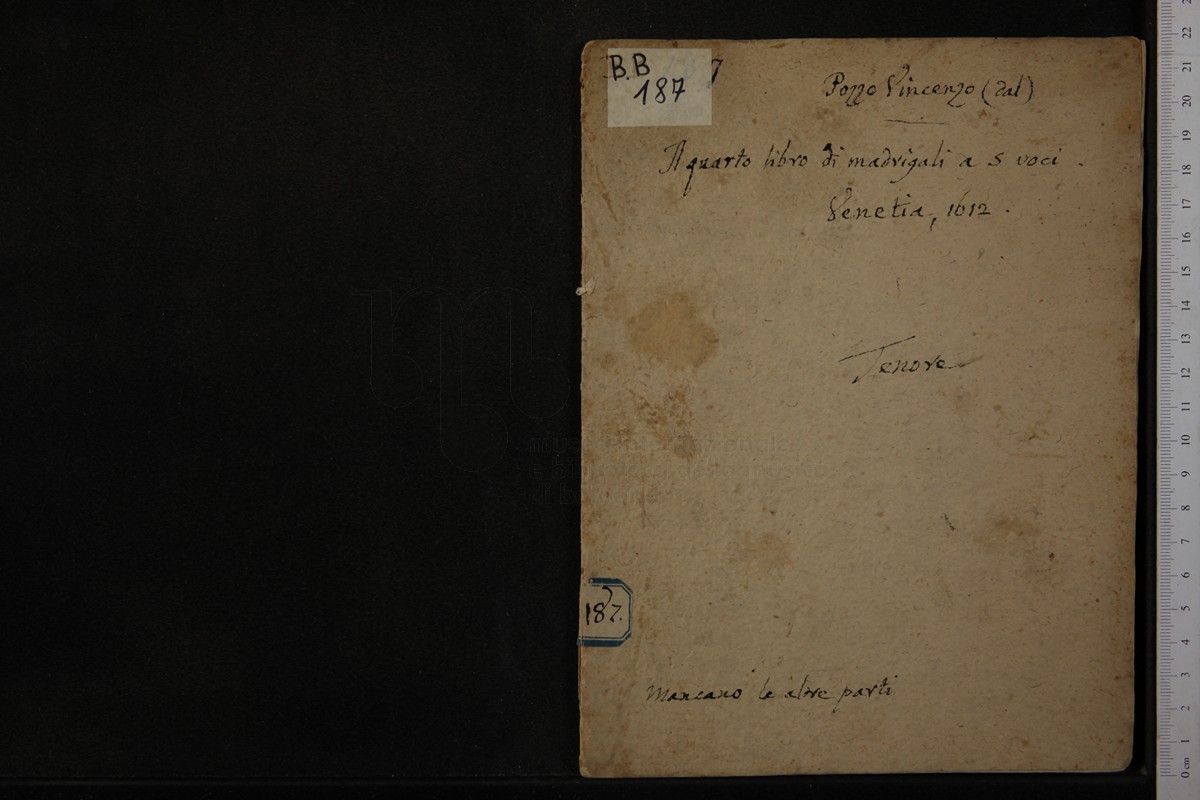 B.B
187
7
Pozzo Vincenzo (dal)
Il quarto libro di madrigali a 5 voci.
Venetia, 1612.
Tenore
187.
Mancano le altre parti
22
21
20
19
18
17
16
15
14
13
12
11
10
9
8
7
6
5
4
3
2
1
0 cm